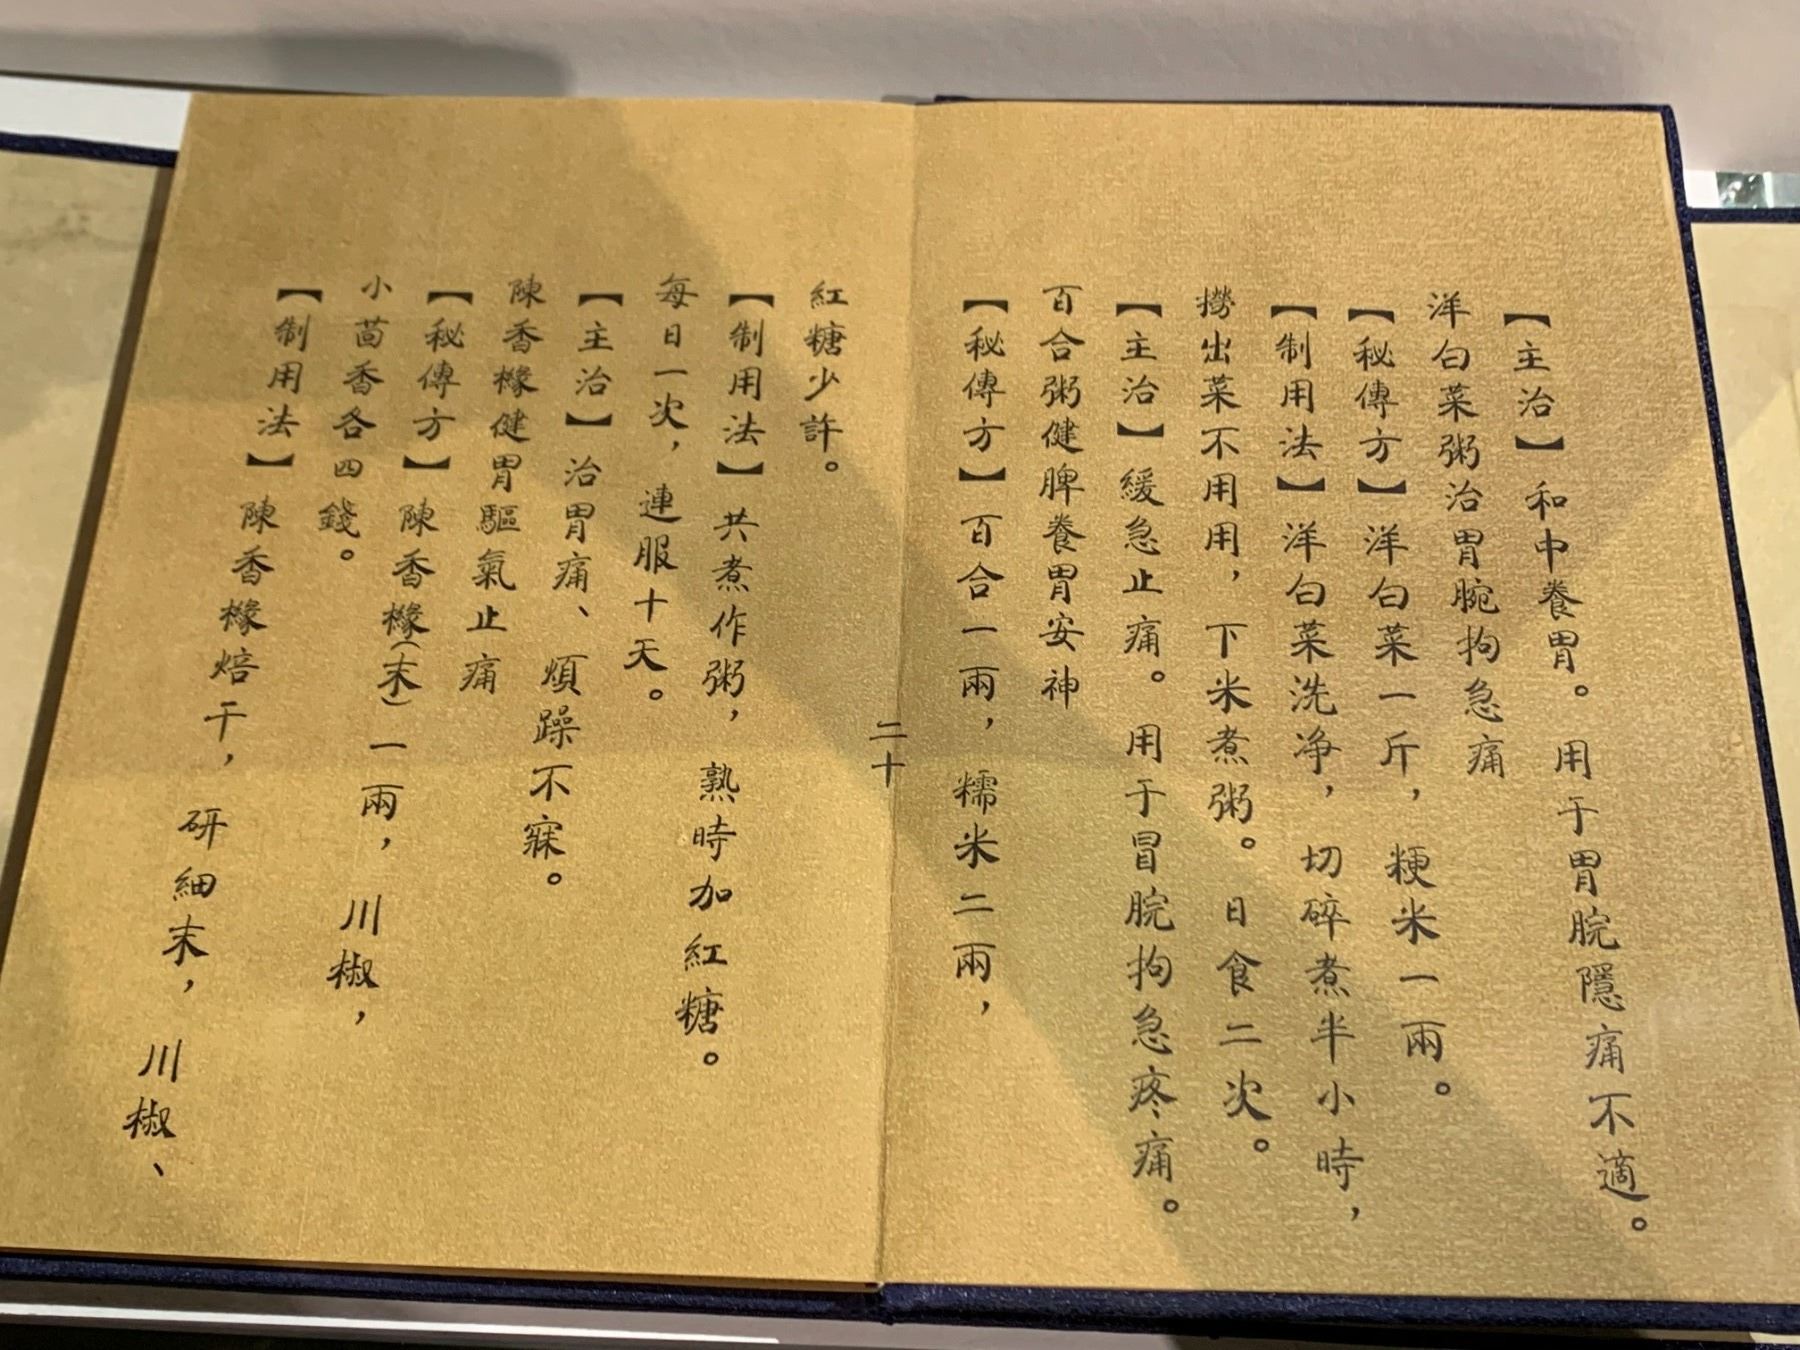 【主治】和中養胃。用于胃脘隱痛不適。
洋白菜粥治胃脘拘急痛
【秘傳方】洋白菜一斤，粳米一兩。
【制用法】洋白菜洗净，切碎煮半小時，
撈出菜不用用，下米煮粥。日食二次。
【主治】緩急止痛。用于冒脘拘急疼痛。
百合粥健脾養胃安神
【秘傳方】百合一兩，糯米二兩，
二十
紅糖少許。
【制用法】共煮作粥，熟時加紅糖。
每日一次，連服十天。
【主治】治胃痛、煩躁不寐。
陳香橼健胃驅氣止痛
【秘傳方】陳香橼（末）一兩，川椒，
小茴香各四錢。
【制用法】陳香橼焙干，研細末，川椒、